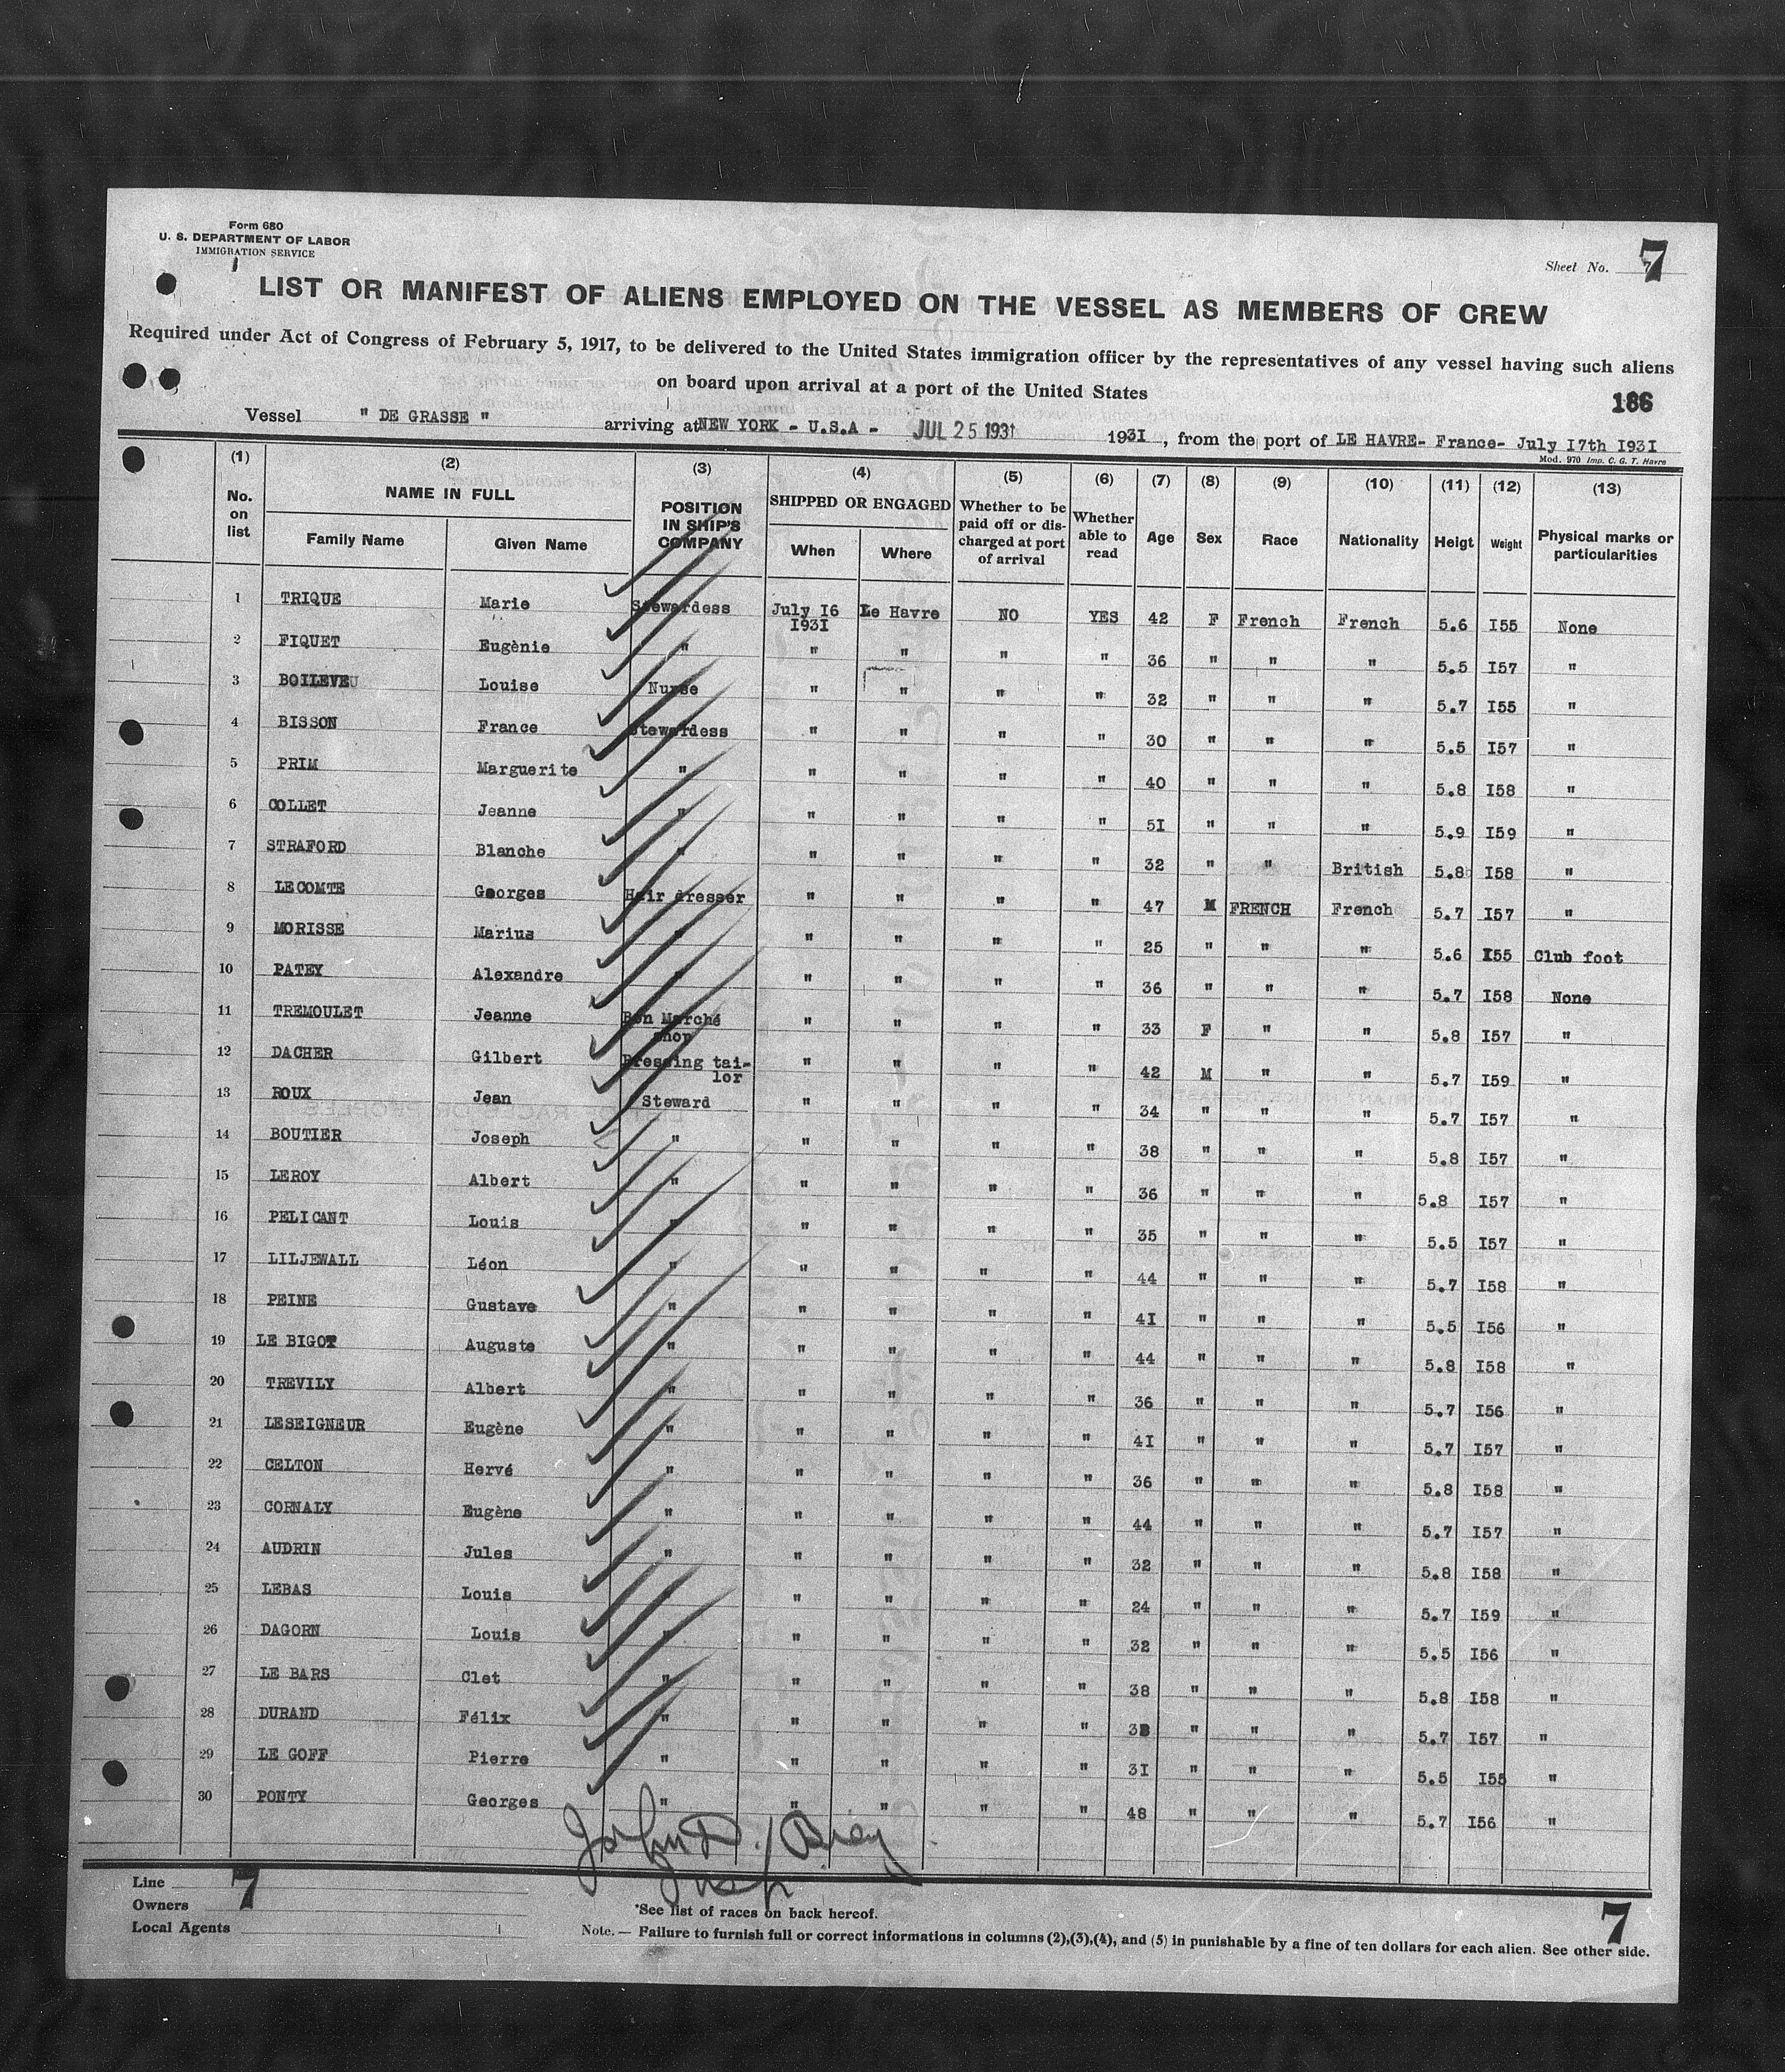 Form 680
U. S. DEPARTMENT OF LABOR
IMMIGRATION SERVICE
Sheet No. 7
LIST OR MANIFEST OF ALIENS EMPLOYED ON THE VESSEL AS MEMBERS OF CREW
Required under Act of Congress of February 5, 1917, to be delivered to the United States immigration officer by the representatives of any vessel having such aliens
on board upon arrival at a port of the United States
186
Vessel " DE GRASSE " arriving at NEW YORK - U.S.A - JUL 25 1931 1931, from the port of LE HAVRE- France- July I7th I93I
Mod. 970 Imp. C. G. T. Havre
(1) (2) (3) (4) (5) (6) (7) (8) (9) (10) (11) (12) (13)
No. on list NAME IN FULL Family Name Given Name POSITION IN SHIP'S COMPANY SHIPPED OR ENGAGED When Where Whether to be paid off or discharged at port of arrival Whether able to read Age Sex Race Nationality Heigt Weight Physical marks or particularities
1 TRIQUE Marie Stewardess July I6 I93I Le Havre NO YES 42 F French French 5.6 I55 None
2 FIQUET Eugènie " " " " " 36 " " " 5.5 I57 "
3 BOILEVEU Louise Nurse " " " " 32 " " " 5.7 I55 "
4 BISSON France Stewardess " " " " 30 " " " 5.5 I57 "
5 PRIM Marguerite " " " " " 40 " " " 5.8 I58 "
6 COLLET Jeanne " " " " " 5I " " " 5.9 I59 "
7 STRAFORD Blanche " " " " " 32 " " British 5.8 I58 "
8 LECOMTE Georges Hair dresser " " " " 47 M FRENCH French 5.7 I57 "
9 MORISSE Marius " " " " " 25 " " " 5.6 I55 Club foot
10 PATEY Alexandre " " " " " 36 " " " 5.7 I58 None
11 TREMOULET Jeanne Bon Marché shop " " " " 33 F " " 5.8 I57 "
12 DACHER Gilbert Pressing tai-lor " " " " 42 M " " 5.7 I59 "
13 ROUX Jean Steward " " " " 34 " " " 5.7 I57 "
14 BOUTIER Joseph " " " " " 38 " " " 5.8 I57 "
15 LEROY Albert " " " " " 36 " " " 5.8 I57 "
16 PELICANT Louis " " " " " 35 " " " 5.5 I57 "
17 LILJEWALL Léon " " " " " 44 " " " 5.7 I58 "
18 PEINE Gustave " " " " " 4I " " " 5.5 I56 "
19 LE BIGOT Auguste " " " " " 44 " " " 5.8 I58 "
20 TREVILY Albert " " " " " 36 " " " 5.7 I56 "
21 LESEIGNEUR Eugène " " " " " 4I " " " 5.7 I57 "
22 CELTON Hervé " " " " " 36 " " " 5.8 I58 "
23 CORNALY Eugène " " " " " 44 " " " 5.7 I57 "
24 AUDRIN Jules " " " " " 32 " " " 5.8 I58 "
25 LEBAS Louis " " " " " 24 " " " 5.7 I59 "
26 DAGORN Louis " " " " " 32 " " " 5.5 I56 "
27 LE BARS Clet " " " " " 38 " " " 5.8 I58 "
28 DURAND Félix " " " " " " " " 5.7 I57 "
29 LE GOFF Pierre " " " " " 3I " " " 5.5 I55 "
30 PONTY Georges " " " " " 48 " " " 5.7 I56 "
John D. Insp
Line 7
Owners
Local Agents
*See list of races on back hereof.
7
Note. — Failure to furnish full or correct informations in columns (2),(3),(4), and (5) in punishable by a fine of ten dollars for each alien. See other side.